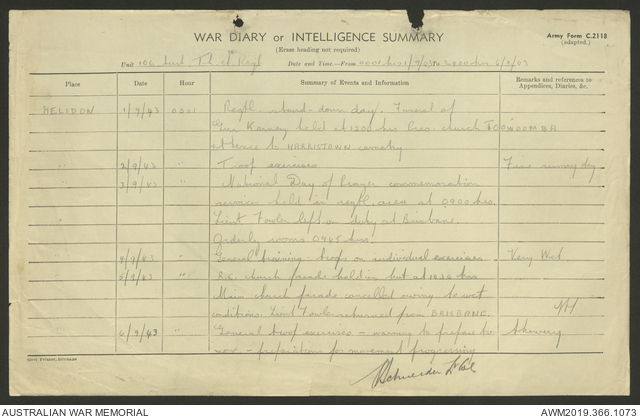 WAR DIARY or INTELLIGENCE SUMMARY
(Erase heading not required)
Army Form C.2118
(adapted.)
Unit 106 Aust Tk Regt
Date and Time—From 0001 hrs 1/9/43 To 2400 hrs 6/9/43
Place Date Hour Summary of Events and Information Remarks and references to Appendices, Diaries, &c.
HELIDON 1/9/43 0001 Regtl stand down day. Funeral of
Kenney held at 1200 hrs Pres. church TOOWOOMBA
thence to HARRISTOWN
" 2/9/43 " Troop exercises Fine sunny day
" 3/9/43 " National Day of Prayer commemoration
services held in regtl area at 0900 hrs.
" Lieut Fowler left on duty at Brisbane.
Orderly room 0945 hrs.
4/9/43 " General training - troops on individual exercises Very Wet
5/9/43 " R.C. church parade held in hut at 1030 hrs
Main church parade cancelled owing to wet
conditions. Lieut Fowler returned from BRISBANE.
" 6/9/43 " General troop exercises - warning to prepare to
move - preparations for movement progressing showery
Schneider Lt Col
AUSTRALIAN WAR MEMORIAL
AWM2019.366.1073